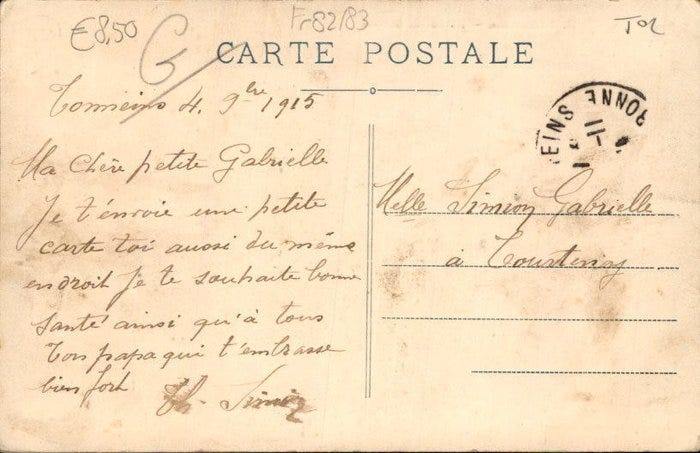 €8,50
Fr82/83
Tol
G
CARTE POSTALE
Tonneins 4. 9bre 1915
EINS
RONNE
11
Ma chère petite Gabrielle
Je t'envoie une petite
carte toi aussi du même
endroit Je te souhaite bonne
santé ainsi qu'à tous
Ton papa qui t'embrasse
bien fort
Th. Siméon
Melle Siméon Gabrielle
à Tourtenay